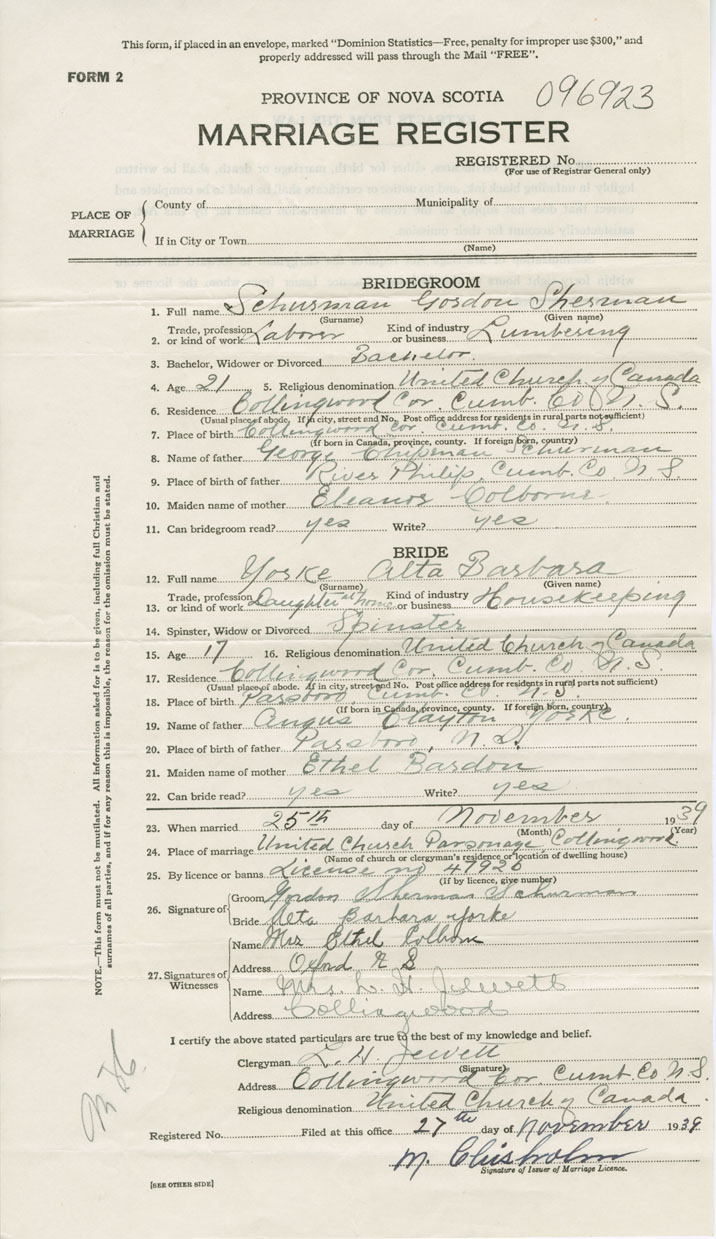 This form, if placed in an envelope, marked “Dominion Statistics—Free, penalty for improper use $300,” and
properly addressed will pass through the Mail “FREE”.
FORM 2
PROVINCE OF NOVA SCOTIA 096923
MARRIAGE REGISTER
REGISTERED No.
(For use of Registrar General only)
PLACE OF MARRIAGE
County of Municipality of
If in City or Town
(Name)
BRIDEGROOM
1. Full name Schurman Gordon Sherman
(Surname) (Given name)
2. Trade, profession or kind of work Laborer Kind of industry or business Lumbering
3. Bachelor, Widower or Divorced Bachelor.
4. Age 21 5. Religious denomination United Church of Canada
6. Residence Collingwood Cor. Cumb. Co N. S.
(Usual place of abode. If in city, street and No. Post office address for residents in rural parts not sufficient)
7. Place of birth Collingwood Cor. Cumb. Co. N. S.
(If born in Canada, province, county. If foreign born, country)
8. Name of father George Chipman Schurman
9. Place of birth of father River Philip, Cumb. Co N. S.
10. Maiden name of mother Eleanor Colborne
11. Can bridegroom read? yes Write? yes
BRIDE
12. Full name Yorke Alta Barbara
(Surname) (Given name)
13. Trade, profession or kind of work Daughter at home Kind of industry or business Housekeeping
14. Spinster, Widow or Divorced Spinster
15. Age 17 16. Religious denomination United Church of Canada
17. Residence Collingwood Cor. Cumb. Co. N. S.
(Usual place of abode. If in city, street and No. Post office address for residents in rural parts not sufficient)
18. Place of birth Parsboro Cumb. Co N. S.
(If born in Canada, province, county. If foreign born, country)
19. Name of father Angus Clayton Yorke.
20. Place of birth of father Parsboro, N. S.
21. Maiden name of mother Ethel Bardon
22. Can bride read? yes Write? yes
23. When married 25th day of November 1939
(Month) (Year)
24. Place of marriage United Church Parsonage, Collingwood.
(Name of church or clergyman's residence or location of dwelling house)
25. By licence or banns License no 47926
(If by licence, give number)
26. Signature of
Groom Gordon Sherman Schurman
Bride Alta Barbara Yorke
27. Signatures of Witnesses
Name Mrs Ethel
Address Oxford N S
Name Mrs. L. H. Jewett
Address Collingwood
I certify the above stated particulars are true to the best of my knowledge and belief.
Clergyman L. H. Jewett
(Signature)
Address Collingwood Cor. Cumb. Co N. S.
Religious denomination United Church of Canada.
Registered No. Filed at this office 27th day of November 1939
M. Chisholm
Signature of Issuer of Marriage Licence.
[SEE OTHER SIDE]
NOTE.—This form must not be mutilated. All information asked for is to be given, including full Christian and
surnames of all parties, and if for any reason this is impossible, the reason for the omission must be stated.